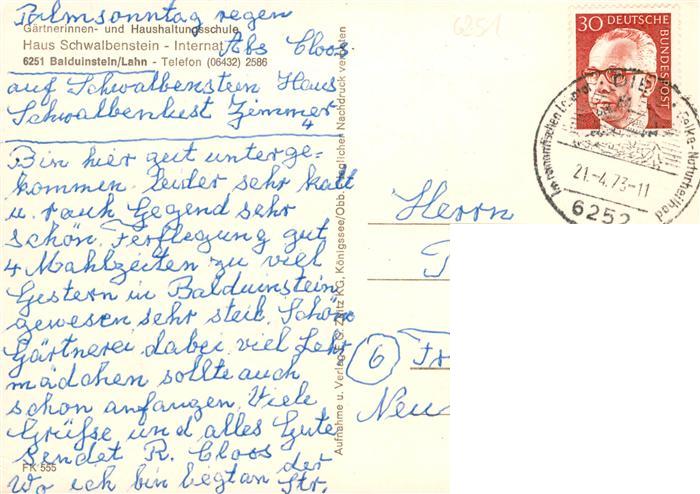 Palmsonntag regen
Gärtnerinnen- und Haushaltungsschule
Haus Schwalbenstein - Internat
6251 Balduinstein/Lahn - Telefon (06432) 2586
Abs Cloos
auf Schwalbenstein Haus
Schwalbenlust Zimmer
4
Bin hier gut unterge-
kommen. Leider sehr kalt
u. rauh Gegend sehr
schön. Ferflegung gut
4 Mahlzeiten zu viel
Gestern in Balduinstein
gewesen sehr steil. Schöne
Gärtnerei dabei viel Lehr
mädchen sollte auch
schon anfangen. Viele
Grüße und alles Gute
sendet R. Cloos
Wo ich bin liegt an der
Str.
FK 555
Aufnahme u. Verlag E.G. Zeitz KG, Königssee/Obb. Jeglicher Nachdruck verboten
6251
30 DEUTSCHE
BUNDESPOST
DIEZ
Im romantischen
21.-4.73-11
6252
Herrn
6 Fr
Neu